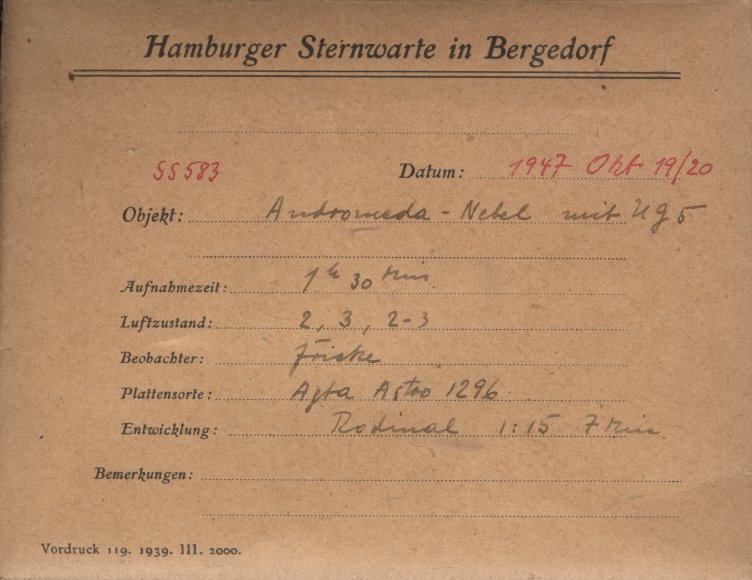 Hamburger Sternwarte in Bergedorf
SS 583 Datum: 1947 Okt 19/20
Objekt: Andromeda-Nebel mit UG 5
Aufnahmezeit: 1h 30 Min
Luftzustand: 2, 3, 2-3
Beobachter: Fricke
Plattensorte: Agfa Astro 1296
Entwicklung: Rodinal 1:15 7 Min
Bemerkungen:
Vordruck 119. 1939. III. 2000.